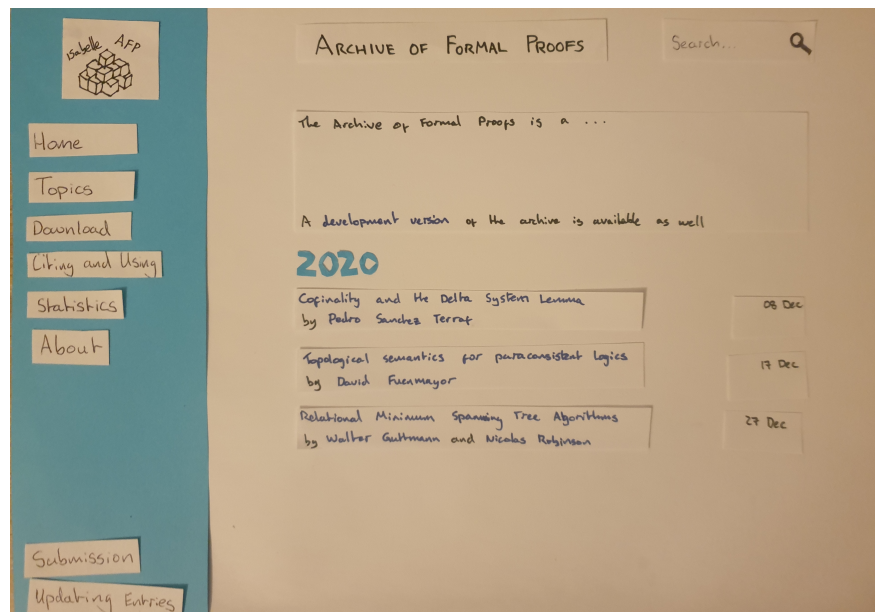 Isabelle AFP
ARCHIVE OF FORMAL PROOFS
Search...
Home
Topics
Download
Citing and Using
Statistics
About
Submission
Updating Entries
The Archive of Formal Proofs is a ...
A development version of the archive is available as well
2020
Cofinality and the Delta System Lemma
by Pedro Sanchez Terraf
08 Dec
Topological semantics for paraconsistent logics
by David Fuenmayor
17 Dec
Relational Minimum Spanning Tree Algorithms
by Walter Guttmann and Nicolas Robinson
27 Dec